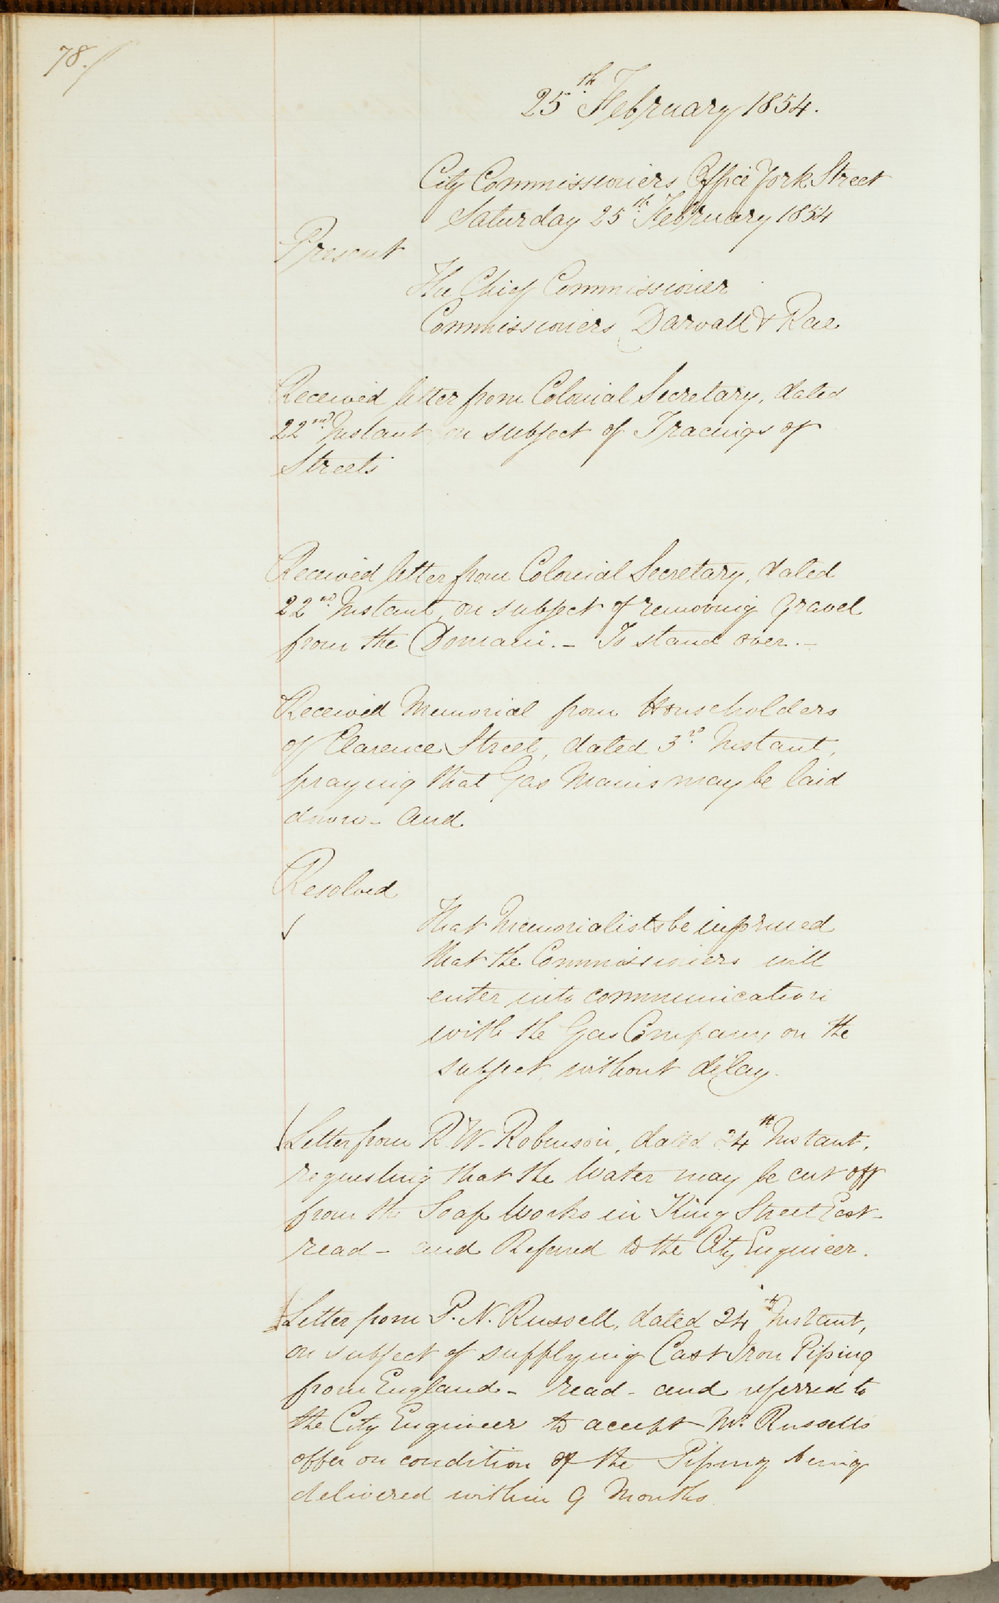 78./
25th February 1854.
City Commissioners Office York Street
Saturday 25th February 1854
Present
The Chief Commissioner
Commissioners Darvall & Rae
Received letter from Colonial Secretary, dated
22nd Instant on subject of Tracings of
Streets
Received letter from Colonial Secretary, dated
22nd Instant, on subject of removing gravel
from the Domain. - To stand over. -
Received Memorial from Householders
of Clarence Street, dated 3rd Instant,
praying that Gas Mains may be laid
down - and
Resolved
That Memorialists be informed
that the Commissioners will
enter into communication
with the Gas Company on the
subject without delay.
Letter from R. W. Robinson, dated 24th Instant,
requesting that the Water may be cut off
from the Soap Works in King Street East -
read - and Referred to the City Engineer.
Letter from P. N. Russell, dated 24th Instant,
on subject of supplying Cast Iron Piping
from England - read - and referred to
the City Engineer to accept Mr. Russells
offer on condition of the Piping being
delivered within 9 Months